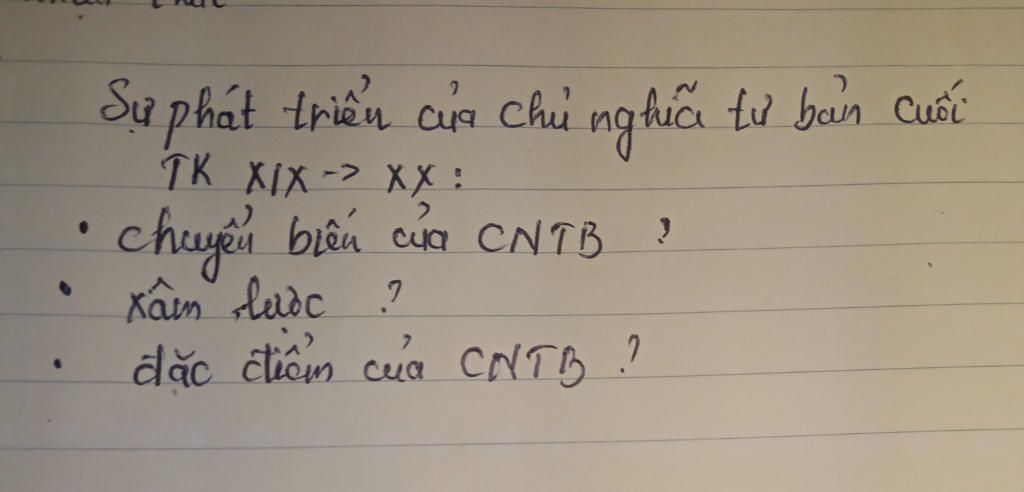 Sự phát triển của chủ nghĩa tư bản cuối
TK XIX -> XX :
• chuyển biến của CNTB ?
• xâm lược ?
• đặc điểm của CNTB ?